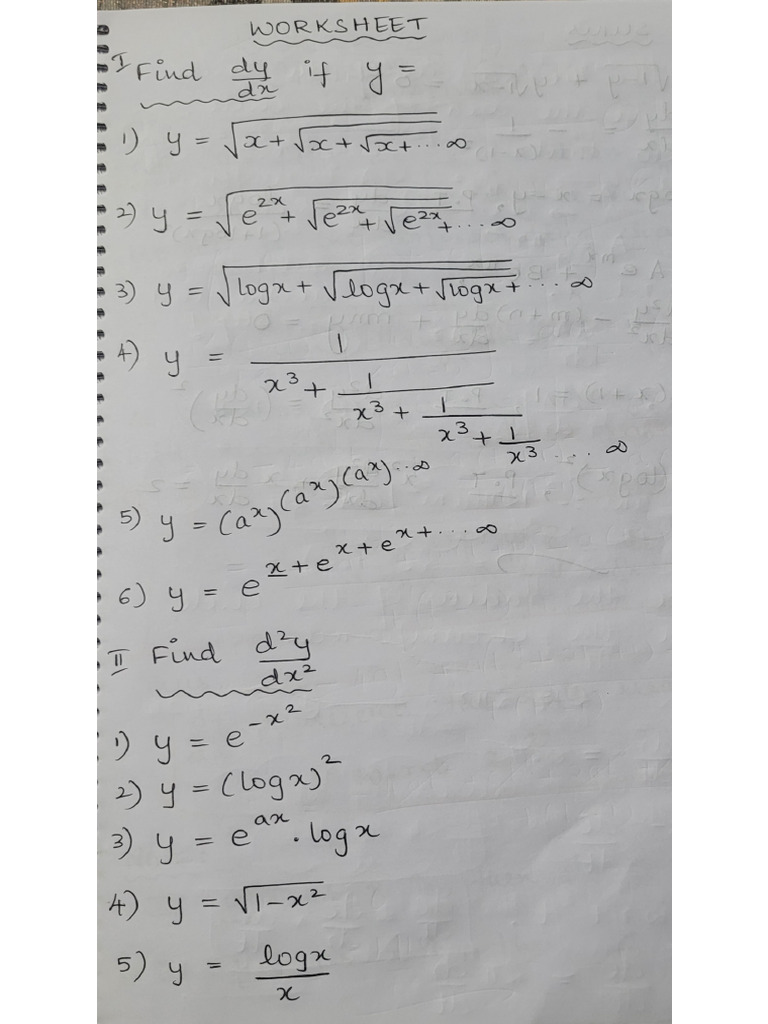 WORKSHEET
I Find dy/dx if y =
1) y = √(x + √(x + √(x + ... ∞
2) y = √(e^2x + √(e^2x + √(e^2x + ... ∞
3) y = √(logx + √(logx + √(logx + ... ∞
4) y = 1/(x³ + 1/(x³ + 1/(x³ + 1/x³ ... ∞
5) y = (a^x)^(a^x)^(a^x)...∞
6) y = e^x + e^x + e^x + ... ∞
II Find d²y/dx²
1) y = e^-x²
2) y = (logx)²
3) y = e^ax . logx
4) y = √(1-x²)
5) y = logx/x